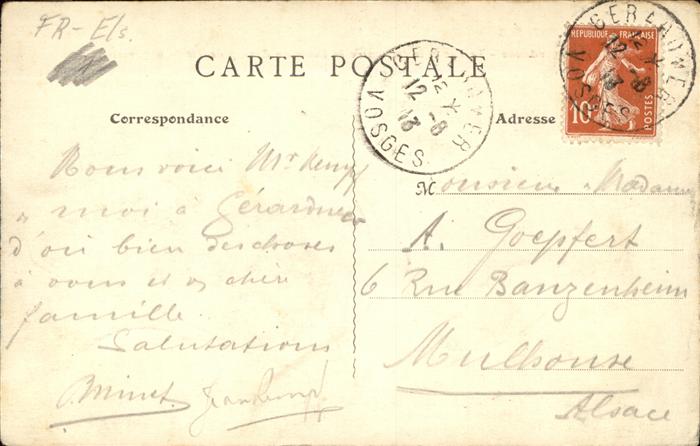 FR-Els.
CARTE POSTALE
Correspondance
Adresse
GERARDMER
12 -8
13
VOSGES
GERARDMER
12 -8
13
VOSGES
REPUBLIQUE FRANÇAISE
10
POSTES
Nous voici Mr Kempf
moi à Gérardmer
d'où bien des choses
à vous et chère
famille.
Salutations
M Monsieur Madame
A. Goepfert
6 Rue Banzenheim
Mulhouse
Alsace